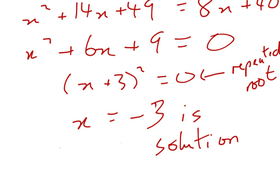 x² + 14x + 49 = 8x + 40
x² + 6x + 9 = 0
(x + 3)² = 0 ← repeated root
x = -3 is
solution